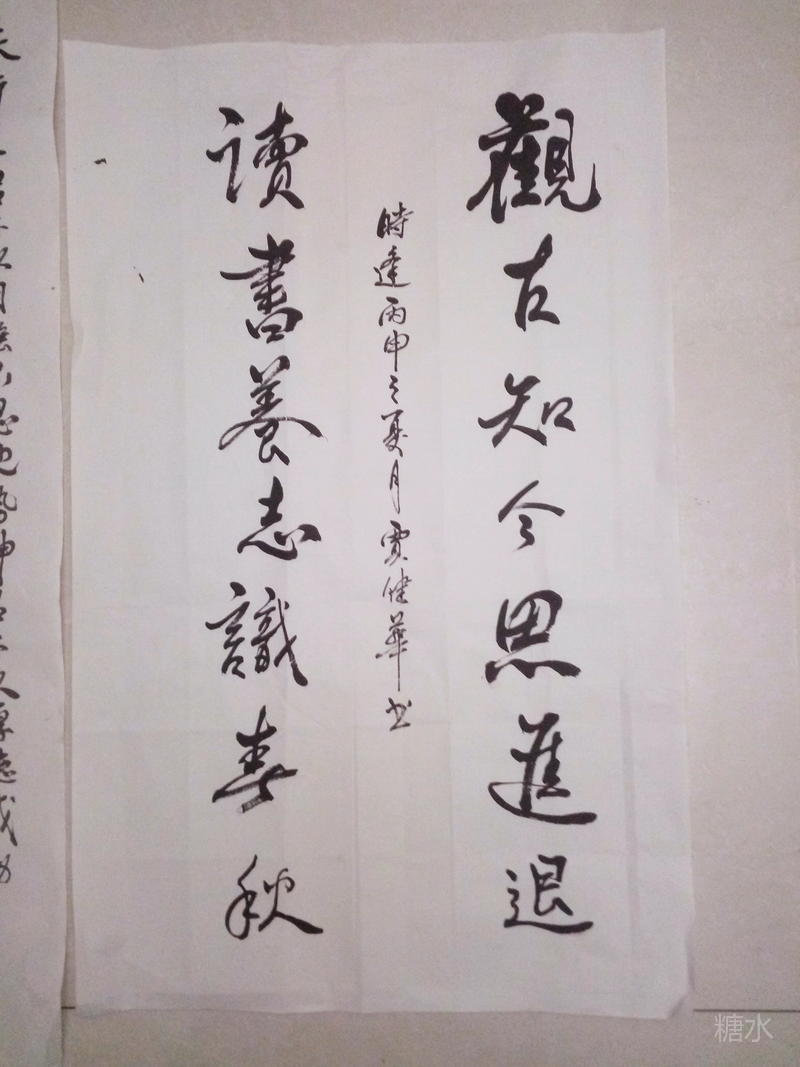 觀古知今思進退
時逢丙申之夏月賈健華书
讀書養志識春秋
糖水